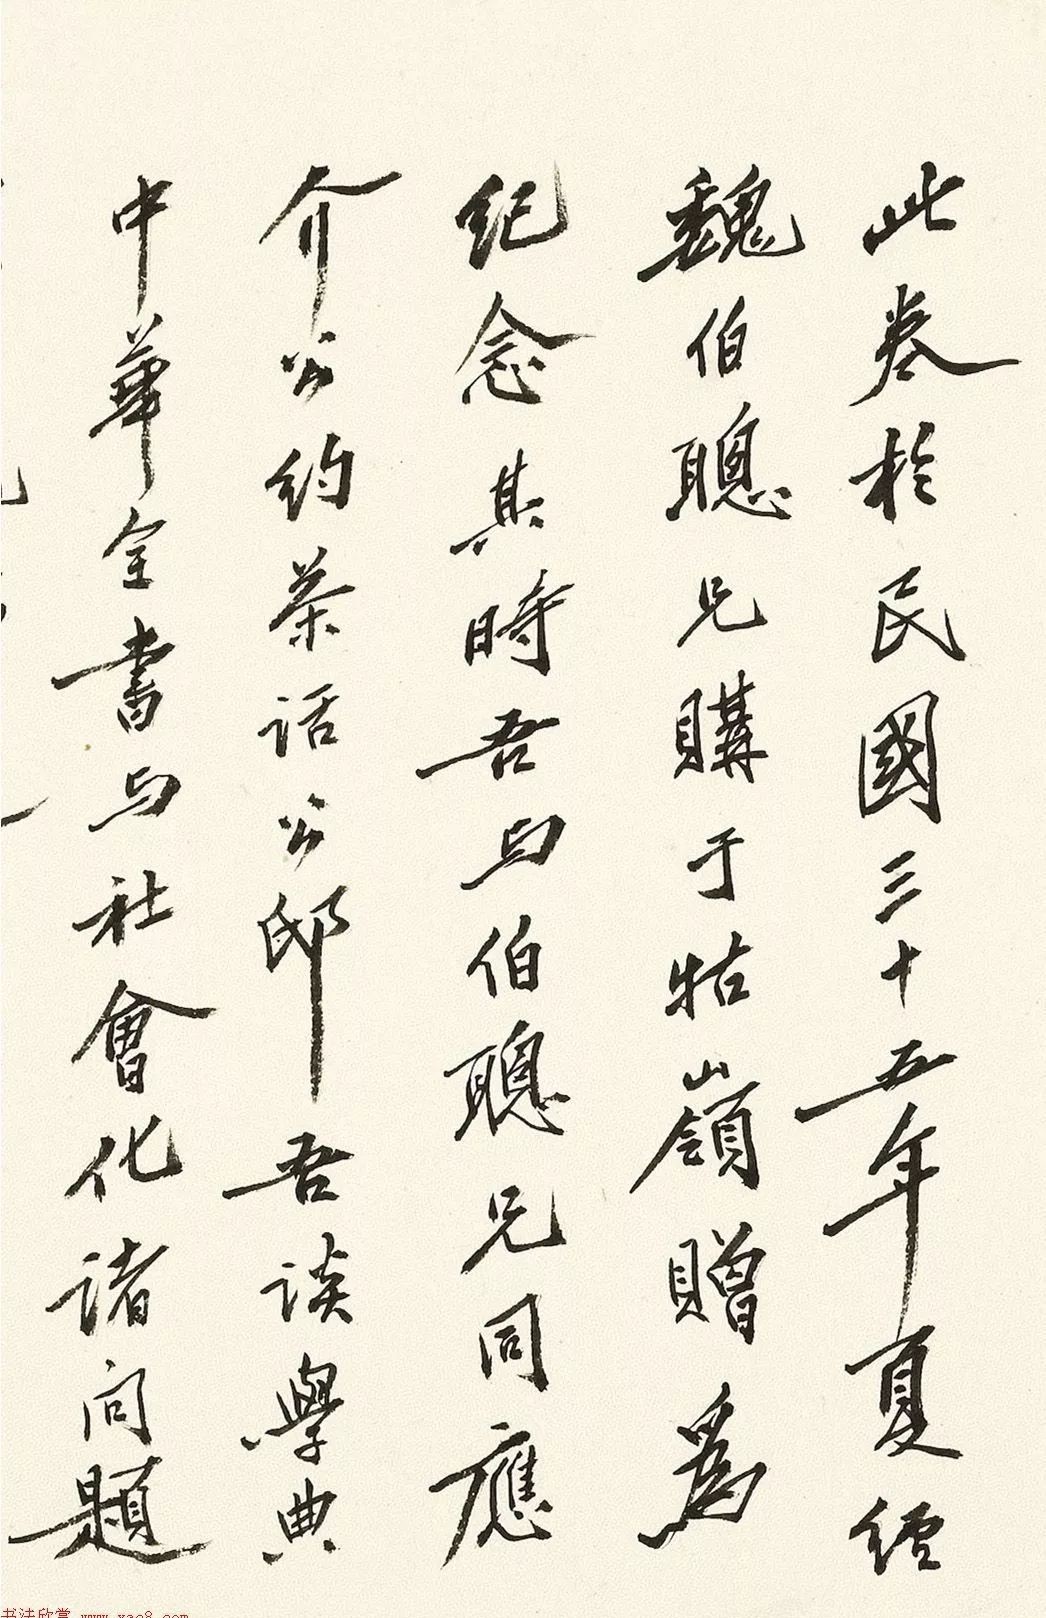 此卷於民國三十五年夏經
魏伯聰兄購于牯嶺贈爲
紀念其時吾与伯聰兄同應
介公約茶話公邸吾談學典
中華全書与社會化諸问題
书法欣赏 www.yac8.com